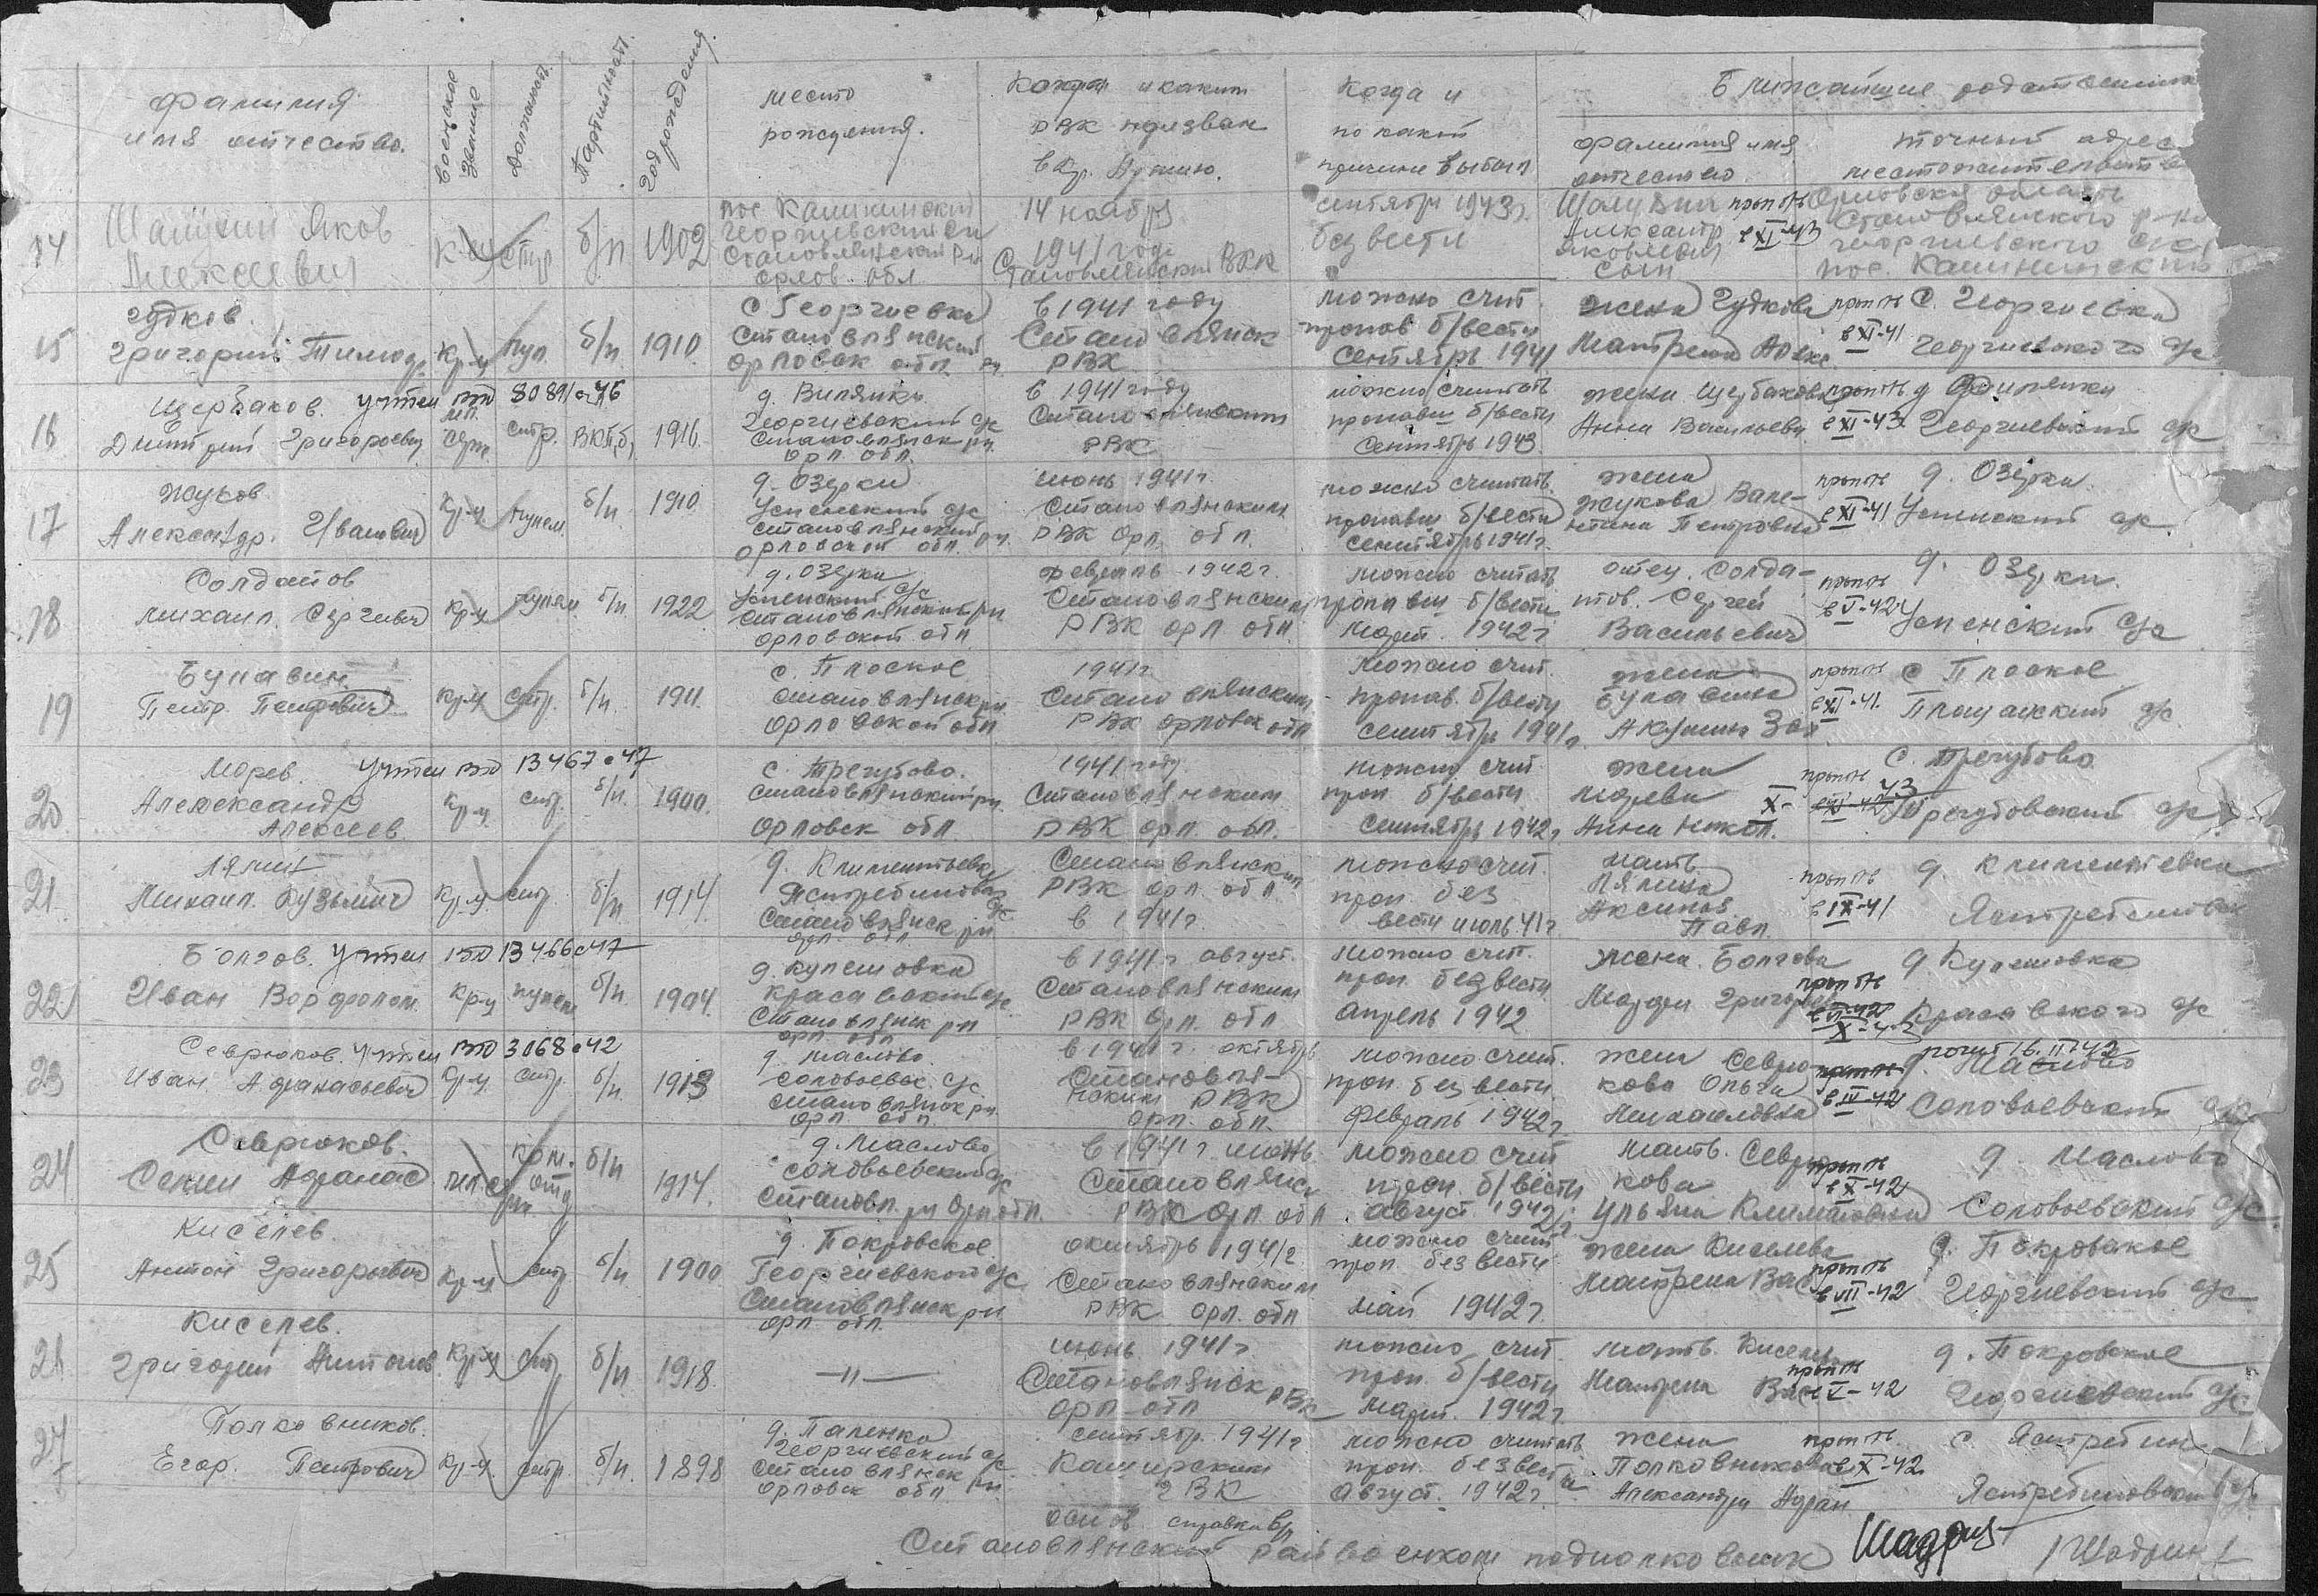 фамилия имя отчество.
Военское звание
Должность.
Партийность.
Год рождения.
место рождения.
Когда и каким РВК призван в Кр. Армию.
Когда и по какой причине выбыл
Ближайшие родственник
фамилия имя отчество
точный адрес местожительств
14 Яков Алексеевич к-ц стр б/п 1902
пос. Калининский Георгиевский с/с Становлянский р-н Орлов. обл
14 ноября 1941 года Становлянский РВК
сентябрь 1943г. без вести
Александр Яковлевич сын
проп ть в XI-43
Орловская область Становлянского р-на Георгиевского с/с пос. Калининский
15 Гудков. Григорий Тимоф. Кр-ц пул. б/п 1910
с Георгиевка Становлянский рн Орловск обл.
в 1941 году Становлянск РВК
можно счит. пропав б/вести сентябрь 1941
жена Гудкова Матрена Алекс.
проп ть в XI-41
с. Георгиевка Георгиевского с/с
16 Щербаков. учтен вто 80891с46
Дмитрий Григорьевич мл. серж. стр. ВКП(б) 1916.
д. Вилянки Георгиевский с/с Становлянск рн. Орл. обл.
в 1941 году Становлянским РВК
можно считать пропавш б/вести сентябрь 1943
жена Щербакова Анна Васильевн
проп ть в XI-43
Георгиевский с/с
17 Жуков Александр. Иванович Кр-ц пулем. б/п 1910
д. Озерки Успенский с/с Становлянский рн. Орловской обл.
июнь 1941г Становлянским РВК Орл. обл.
можно считать пропавш б/вести сентябрь 1941г.
жена Жукова Вале- нтина Петровна
проп ть в XI-41
д. Озерки. Успенский с/с
18 Солдатов Михаил. Сергеевич Кр-ц пулем б/п 1922
д. Озерки Успенский с/с Становлянский рн Орловской обл
февраль 1942г. Становлянским РВК Орл обл.
можно считать пропавш б/вести март. 1942г
отец. Солда- тов. Сергей Васильевич
проп ть в V-42
д. Озерки. Успенский с/с
19 Булавин. Петр. Петрович Кр-ц стр. б/п. 1911.
с. Плоское Становлянск рн Орловской обл
1941г. Становлянским РВК Орловск обл
можно счит. пропав. б/вести сентябрь 1941г.
жена Булавина
проп ть в XI-41.
с Плоское с/с
20 Морев. учтен вто 13467с47
Алелександр Алексеев. Кр-ц стр. б/п. 1900.
с. Трегубово. Становлянский рн. Орловск обл
1941 году Становлянским РВК орл. обл.
можно счит проп б/вести сентябрь 1942г
жена Морева Анна Никол.
проп ть X- 43
с. Трегубово Трегубовский с/с
21 Лялин Михаил. Кузьмич Кр-ц. стр. б/п 1914.
д. Климентьевка Ястребиновск с/с Становлянск рн орл. обл
Становлянск РВК орл. обл. в 1941г.
можно счит. проп. без вести июль 41г.
мать Лялина Аксинья Павл.
проп ть в IX-41
д. Климентевка Ястребиновск
22 Болгов. учтен вто 13466с47
Иван Варфолом. Кр-ц пулем б/п. 1904.
д. Кулешовка Красавский с/с Становлянск рн орл. обл
в 1941г август. Становлянским РВК Орл. обл
можно счит. проп. без вести апрель 1942
жена. Болгова Григорьев
проп ть X-43
д. Кулешовка Красавского с/с
23 Севрюков. учтен вто 3068с42
Иван Афанасьевич Кр-ц. стр. б/п. 1913
д. Маслово. Соловьевс. с/с Становлянск рн. орл обл
в 1941г. октябрь Становля- нским РВК орл. обл.
можно счит. проп. без вести. февраль 1942г
жена Севрю- кова Ольга Михайловна
погиб 16.II-42
в IV-42
д. Маслово Соловьевский с/с
24 Севрюков. Семен Афанас мл сержн ком. отд б/п 1914.
д. Маслово Соловьевский с/с Становл. рн Орл обл.
в 1941г. июнь Становлянск РВК Орл обл
можно счит проп. б/вести август. 1942г
мать. Севрю- кова Ульяна Климовна
проп ть в X-42
д. Маслово Соловьевский с/с
25 Киселев. Антон Григорьевич Кр-ц стр б/п 1900
д. Покровское Георгиевского с/с Становлянск рн орл. обл.
октябрь 1941г Становлянским РВК орл. обл
можно счит проп. без вести май 1942г.
жена Киселева Матрена Вас
проп ть в VII-42
д. Покровское Георгиевский с/с
26 Киселев. Григорий Антонов. Кр-ц стр б/п 1918.
—"—
июнь 1941г Становлянск РВК орл обл
можно счит. проп. б/вести март. 1942г
мать. Киселев Матрена Вас
проп ть в V-42
д. Покровское Георгиевский с/с
27 Полковников. Егор. Петрович Кр-ц. стр. б/п. 1898
д. Паленка Георгиевский с/с Становлянск рн Орловск обл
сентябр. 1941г Каширским ГВК
можно считать проп. без вести август. 1942г.
жена Полковникова Александра
проп ть в X-42
с. Ястребин Ястребиновский с/с
основ справки
Становлянский райвоенком подполковник Шадрин /Шадрин/